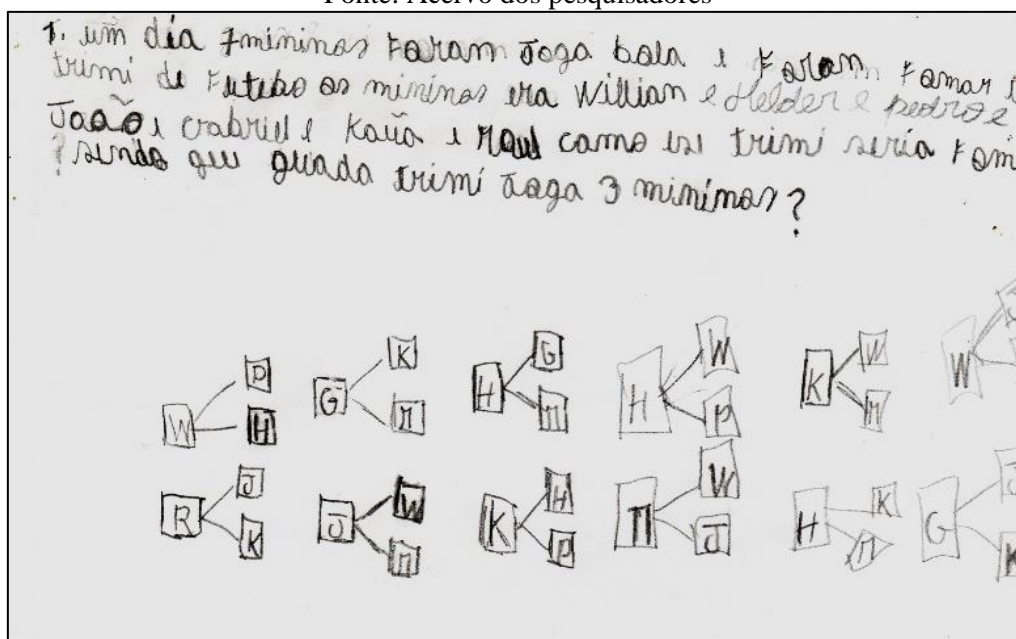 Fonte: Acervo dos pesquisadores
1. um dia 7 mininos Foram Joga bola e Foram Fomar
trimi de Futebo os mininos era Willian e Helder e pedro e
Joaõ e Gabriel e Kauã e Raul como esi trimi seria Fom
? sendo que quada trimi Joga 3 mininos?
P K G W W J
W G H H K W
H M M P M
J W H W K J
R J K M H G
K M P J M K